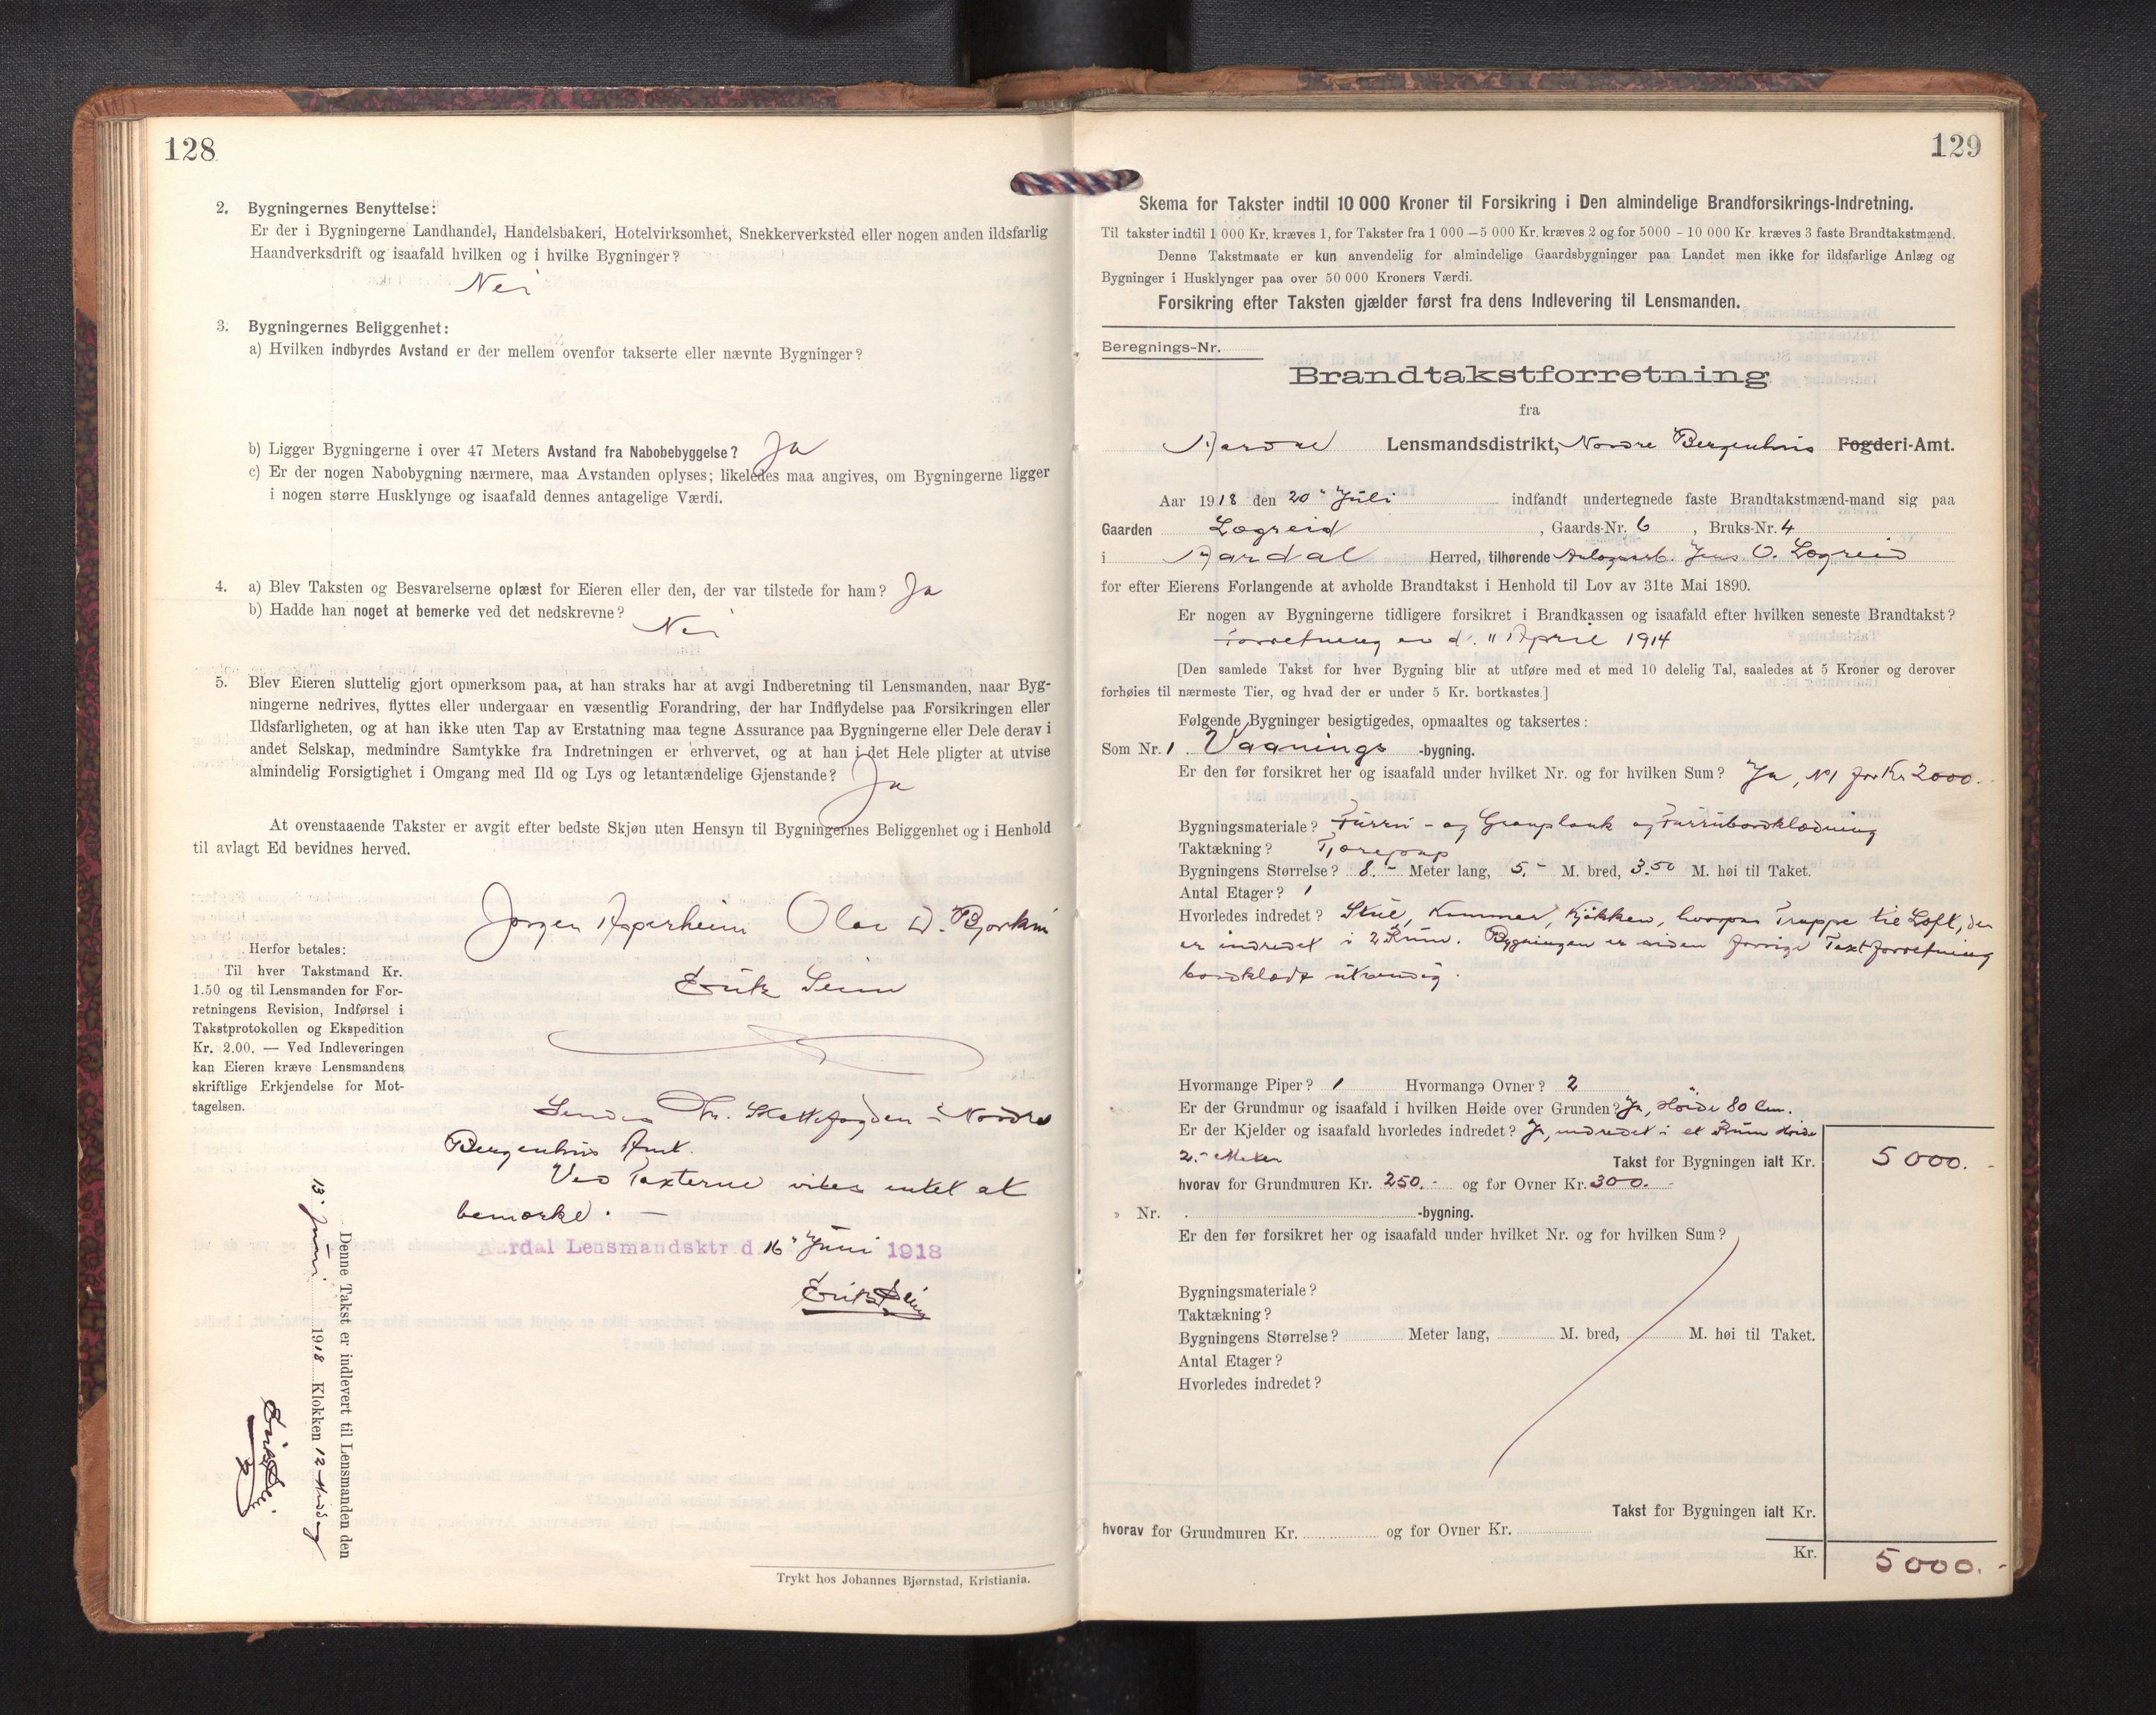 128
2. Bygningernes Benyttelse:
Er der i Bygningerne Landhandel, Handelsbakeri, Hotelvirksomhet, Snekkerverksted eller nogen anden ildsfarlig
Haandverksdrift og isaafald hvilken og i hvilke Bygninger?
Nei
3. Bygningernes Beliggenhet:
a) Hvilken indbyrdes Avstand er der mellem ovenfor takserte eller nævnte Bygninger?
b) Ligger Bygningerne i over 47 Meters Avstand fra Nabobebyggelse? Ja
c) Er der nogen Nabobygning nærmere, maa Avstanden oplyses; likeledes maa angives, om Bygningerne ligger
i nogen større Husklynge og isaafald dennes antagelige Værdi.
4. a) Blev Taksten og Besvarelserne oplæst for Eieren eller den, der var tilstede for ham? Ja
b) Hadde han noget at bemerke ved det nedskrevne?
Nei
5. Blev Eieren sluttelig gjort opmerksom paa, at han straks har at avgi Indberetning til Lensmanden, naar Byg-
ningerne nedrives, flyttes eller undergaar en væsentlig Forandring, der har Indflydelse paa Forsikringen eller
Ildsfarligheten, og at han ikke uten Tap av Erstatning maa tegne Assurance paa Bygningerne eller Dele derav i
andet Selskap, medmindre Samtykke fra Indretningen er erhvervet, og at han i det Hele pligter at utvise
almindelig Forsigtighet i Omgang med Ild og Lys og letantændelige Gjenstande? Ja
At ovenstaaende Takster er avgit efter bedste Skjøn uten Hensyn til Bygningernes Beliggenhet og i Henhold
til avlagt Ed bevidnes herved.
Jørgen Asperheim Olav D. Bjørkum
Erik Seim
Herfor betales:
Til hver Takstmand Kr.
1.50 og til Lensmanden for For-
retningens Revision, Indførsel i
Takstprotokollen og Ekspedition
Kr. 2.00. — Ved Indleveringen
kan Eieren kræve Lensmandens
skriftlige Erkjendelse for Mot-
tagelsen.
Sendes Hr. Skattefogden i Nordre
Bergenhus Amt.
Ved Taxterne vites intet at
bemærke. —
Aardal Lensmandsktr. d. 16 Juni 1918
Erik Seim
Denne Takst er indlevert til Lensmanden den
13. Juni 1918 Klokken 12 Middag
Erik Seim
Trykt hos Johannes Bjørnstad, Kristiania.
129
Skema for Takster indtil 10 000 Kroner til Forsikring i Den almindelige Brandforsikrings-Indretning.
Til takster indtil 1 000 Kr. kræves 1, for Takster fra 1 000 – 5 000 Kr. kræves 2 og for 5000 – 10 000 Kr. kræves 3 faste Brandtakstmænd.
Denne Takstmaate er kun anvendelig for almindelige Gaardsbygninger paa Landet men ikke for ildsfarlige Anlæg og
Bygninger i Husklynger paa over 50 000 Kroners Værdi.
Forsikring efter Taksten gjælder først fra dens Indlevering til Lensmanden.
Beregnings-Nr.
Brandtakstforretning
fra
Aardal Lensmandsdistrikt, Nordre Bergenhus Fogderi-Amt.
Aar 1918 den 20 Juli indfandt undertegnede faste Brandtakstmænd-mand sig paa
Gaarden Lægreid, Gaards-Nr. 6, Bruks-Nr. 4
i Aardal Herred, tilhørende Anlægsarb. Jens O. Lægreid
for efter Eierens Forlangende at avholde Brandtakst i Henhold til Lov av 31te Mai 1890.
Er nogen av Bygningerne tidligere forsikret i Brandkassen og isaafald efter hvilken seneste Brandtakst?
Forretning av d. 11 April 1914
[Den samlede Takst for hver Bygning blir at utføre med et med 10 delelig Tal, saaledes at 5 Kroner og derover
forhøies til nærmeste Tier, og hvad der er under 5 Kr. bortkastes.]
Følgende Bygninger besigtigedes, opmaaltes og taksertes:
Som Nr. 1. Vaanings -bygning.
Er den før forsikret her og isaafald under hvilket Nr. og for hvilken Sum? Ja, No 1 for Kr 2000.
Bygningsmateriale? Furru- og Granplank og Furrubordklædning
Taktækning? Tjærepap
Bygningens Størrelse? 8.- Meter lang, 5.- M. bred, 3.50 M. høi til Taket.
Antal Etager? 1
Hvorledes indredet? Stue, Kammer, Kjøkken, hvorpaa Trappe til Loft, der
er indredet i 2 Rum. Bygningen er siden forrige Taxtforretning
bordklædt utvendig.
Hvormange Piper? 1 Hvormange Ovner? 2
Er der Grundmur og isaafald i hvilken Høide over Grunden? Ja, Høide 80 Cm.
Er der Kjelder og isaafald hvorledes indredet? Ja, indredet i et Rum Høide
2.- Meter Takst for Bygningen ialt Kr. 5000.-
hvorav for Grundmuren Kr. 250.- og for Ovner Kr. 300.-
» Nr. -bygning.
Er den før forsikret her og isaafald under hvilket Nr. og for hvilken Sum?
Bygningsmateriale?
Taktækning?
Bygningens Størrelse? Meter lang, M. bred, M. høi til Taket.
Antal Etager?
Hvorledes indredet?
Takst for Bygningen ialt Kr.
hvorav for Grundmuren Kr. og for Ovner Kr.
Kr. 5000.-